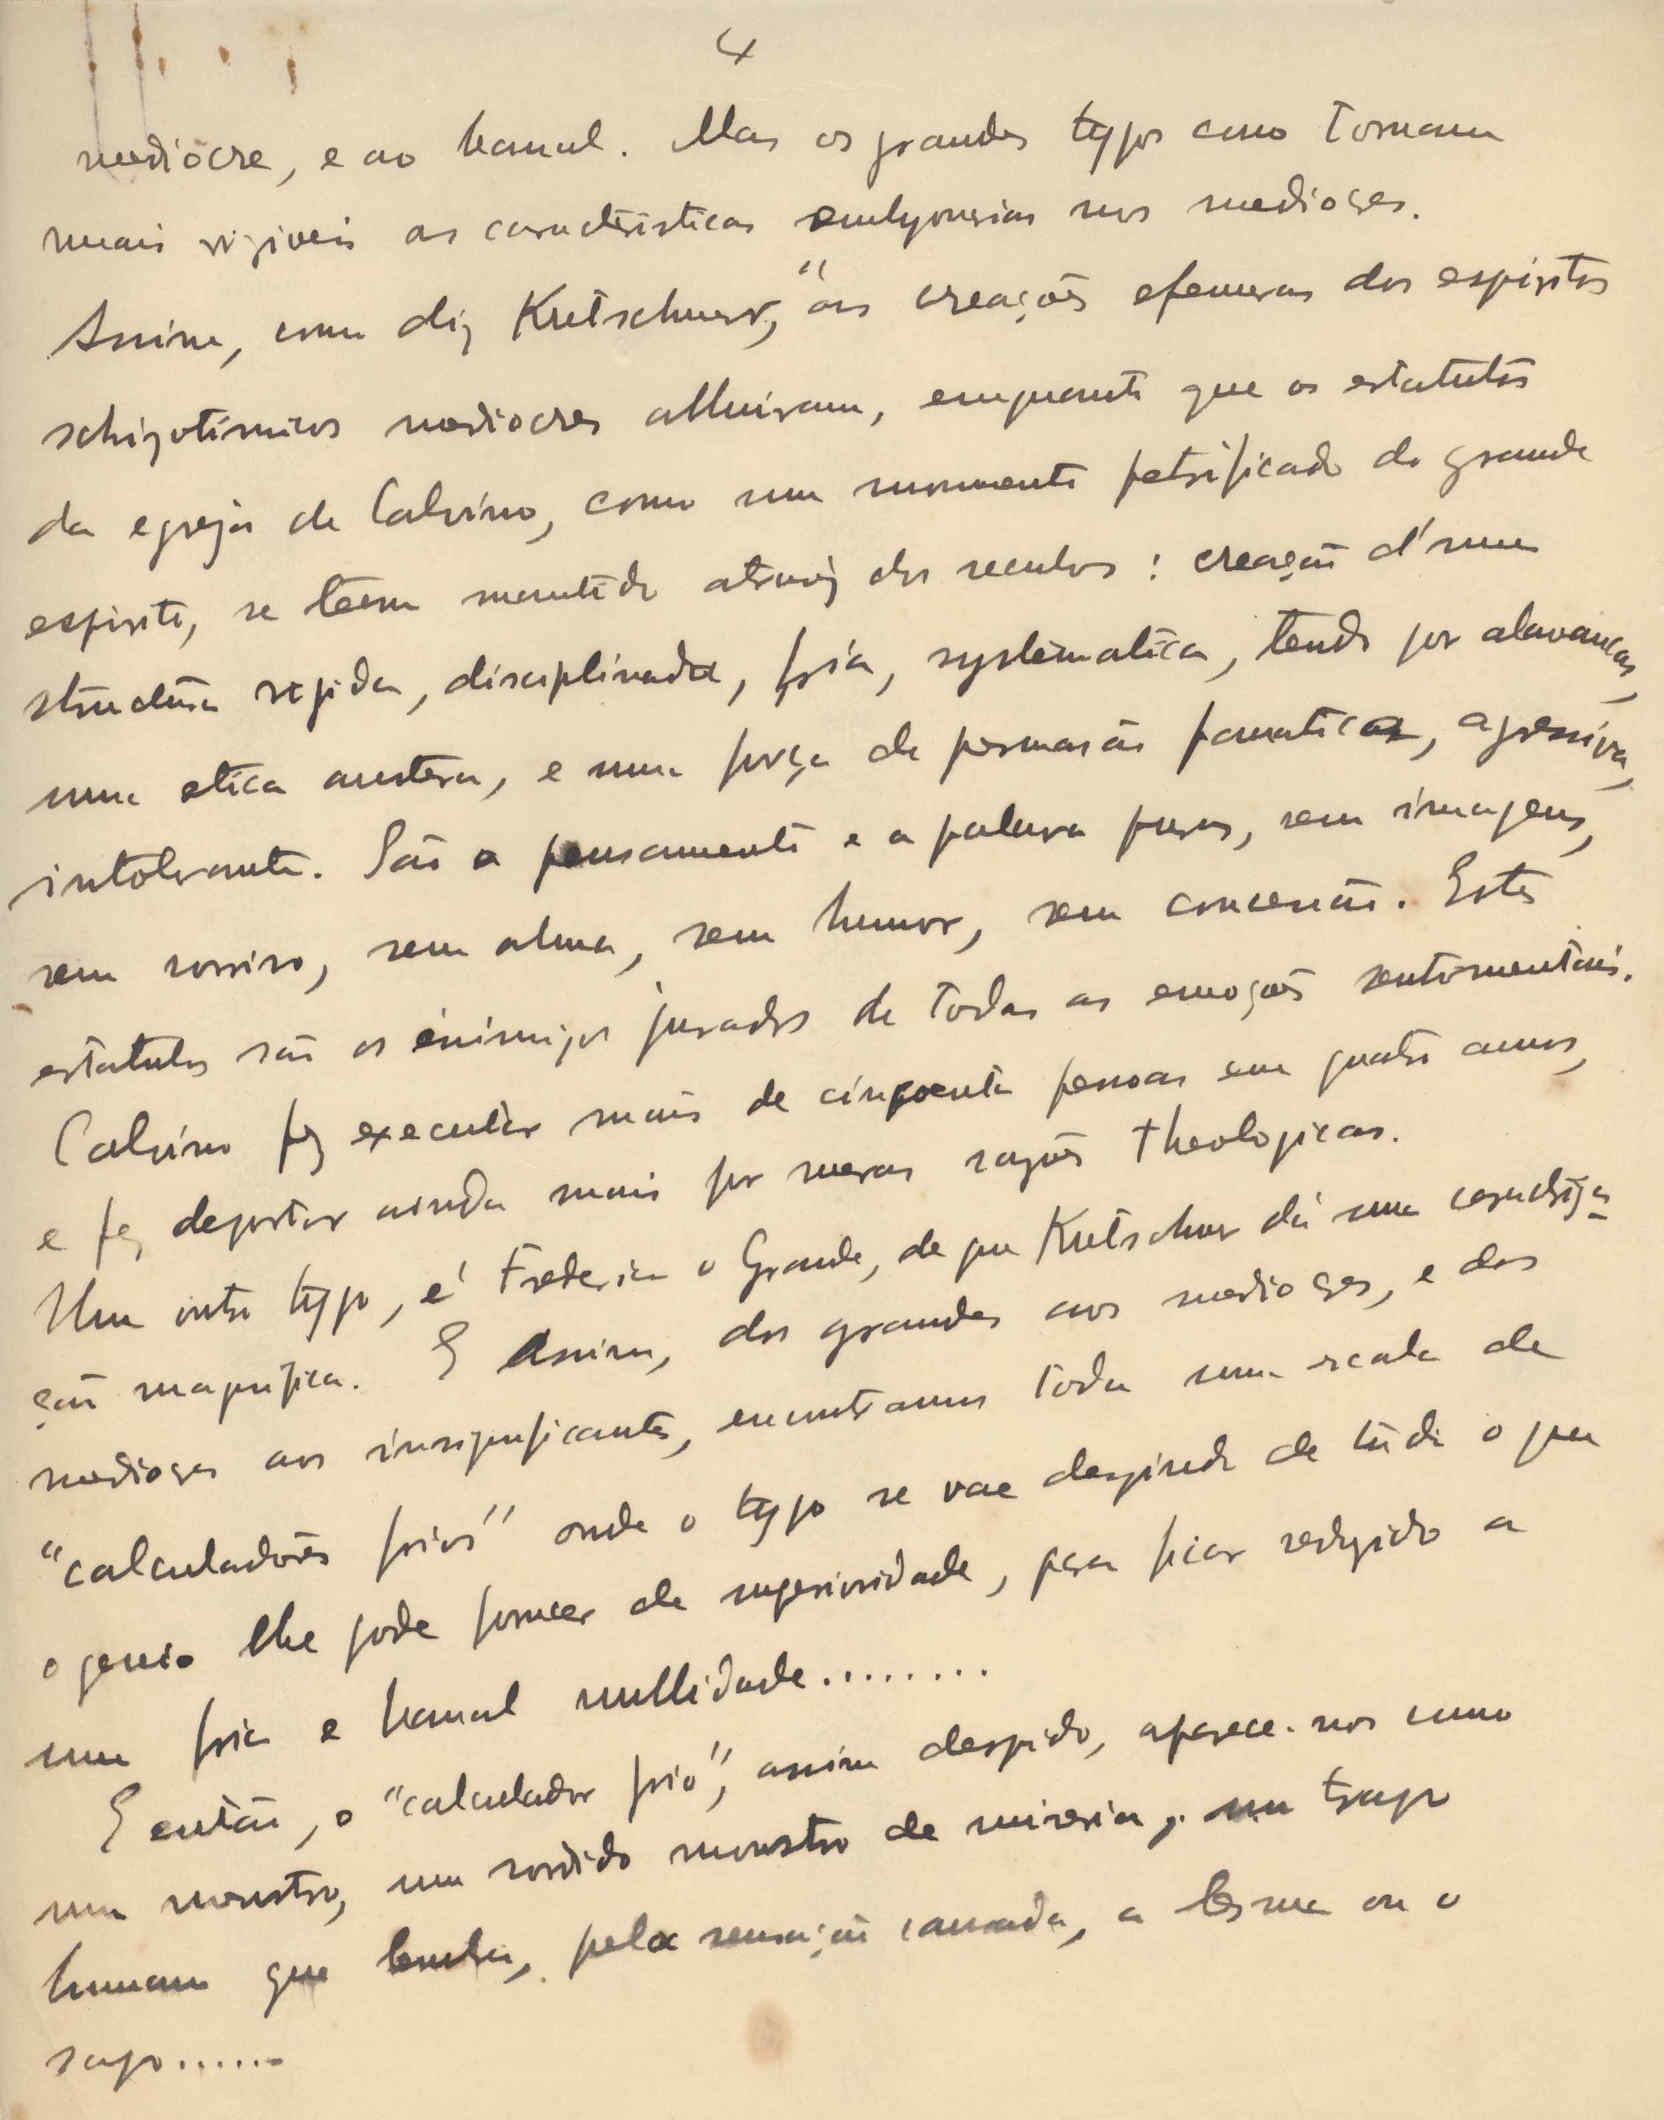 4
mediocre, e ao banal. Mas os grandes typos como tornam
mais visiveis as caracteristicas embryonarias nos mediocres.
Assim, como diz Kretschmer, "as creações efemeras dos espiritos
schizotimicos mediocres alluiram, emquanto que os estatutos
da egreja de Calvino, como um monumento petrificado do grande
espirito, se teem mantido atravez dos seculos: creação d'uma
structura rigida, disciplinada, fria, systematica, tendo por alavancas,
uma etica austera, e uma força de persuasão fanatica, agressiva,
intolerante. São o pensamento e a palavra puros, sem imagens,
sem sorriso, sem alma, sem humor, sem concessão. Estes
estatutos são os inimigos jurados de todas as emoções sentimentais.
Calvino fez executar mais de cincoenta pessoas em quatro annos,
e fez deportar ainda mais por meras razões theologicas.
Um outro typo, é Frederico o Grande, de que Kretschmer dá uma
ção magnifica. E assim, dos grandes aos mediocres, e dos
mediocres aos insignificantes, encontramos toda uma escala de
"calculadores frios" onde o typo se vae despindo de tudo o que
o genio lhe pode fornecer de superioridade, para ficar reduzido a
uma fria e banal nullidade........
E então, o "calculador frio", assim despido, aparece-nos como
um monstro, um sordido monstro de miseria, um trapo
humano que lembra, pela sensação causada, a lesma ou o
sapo......